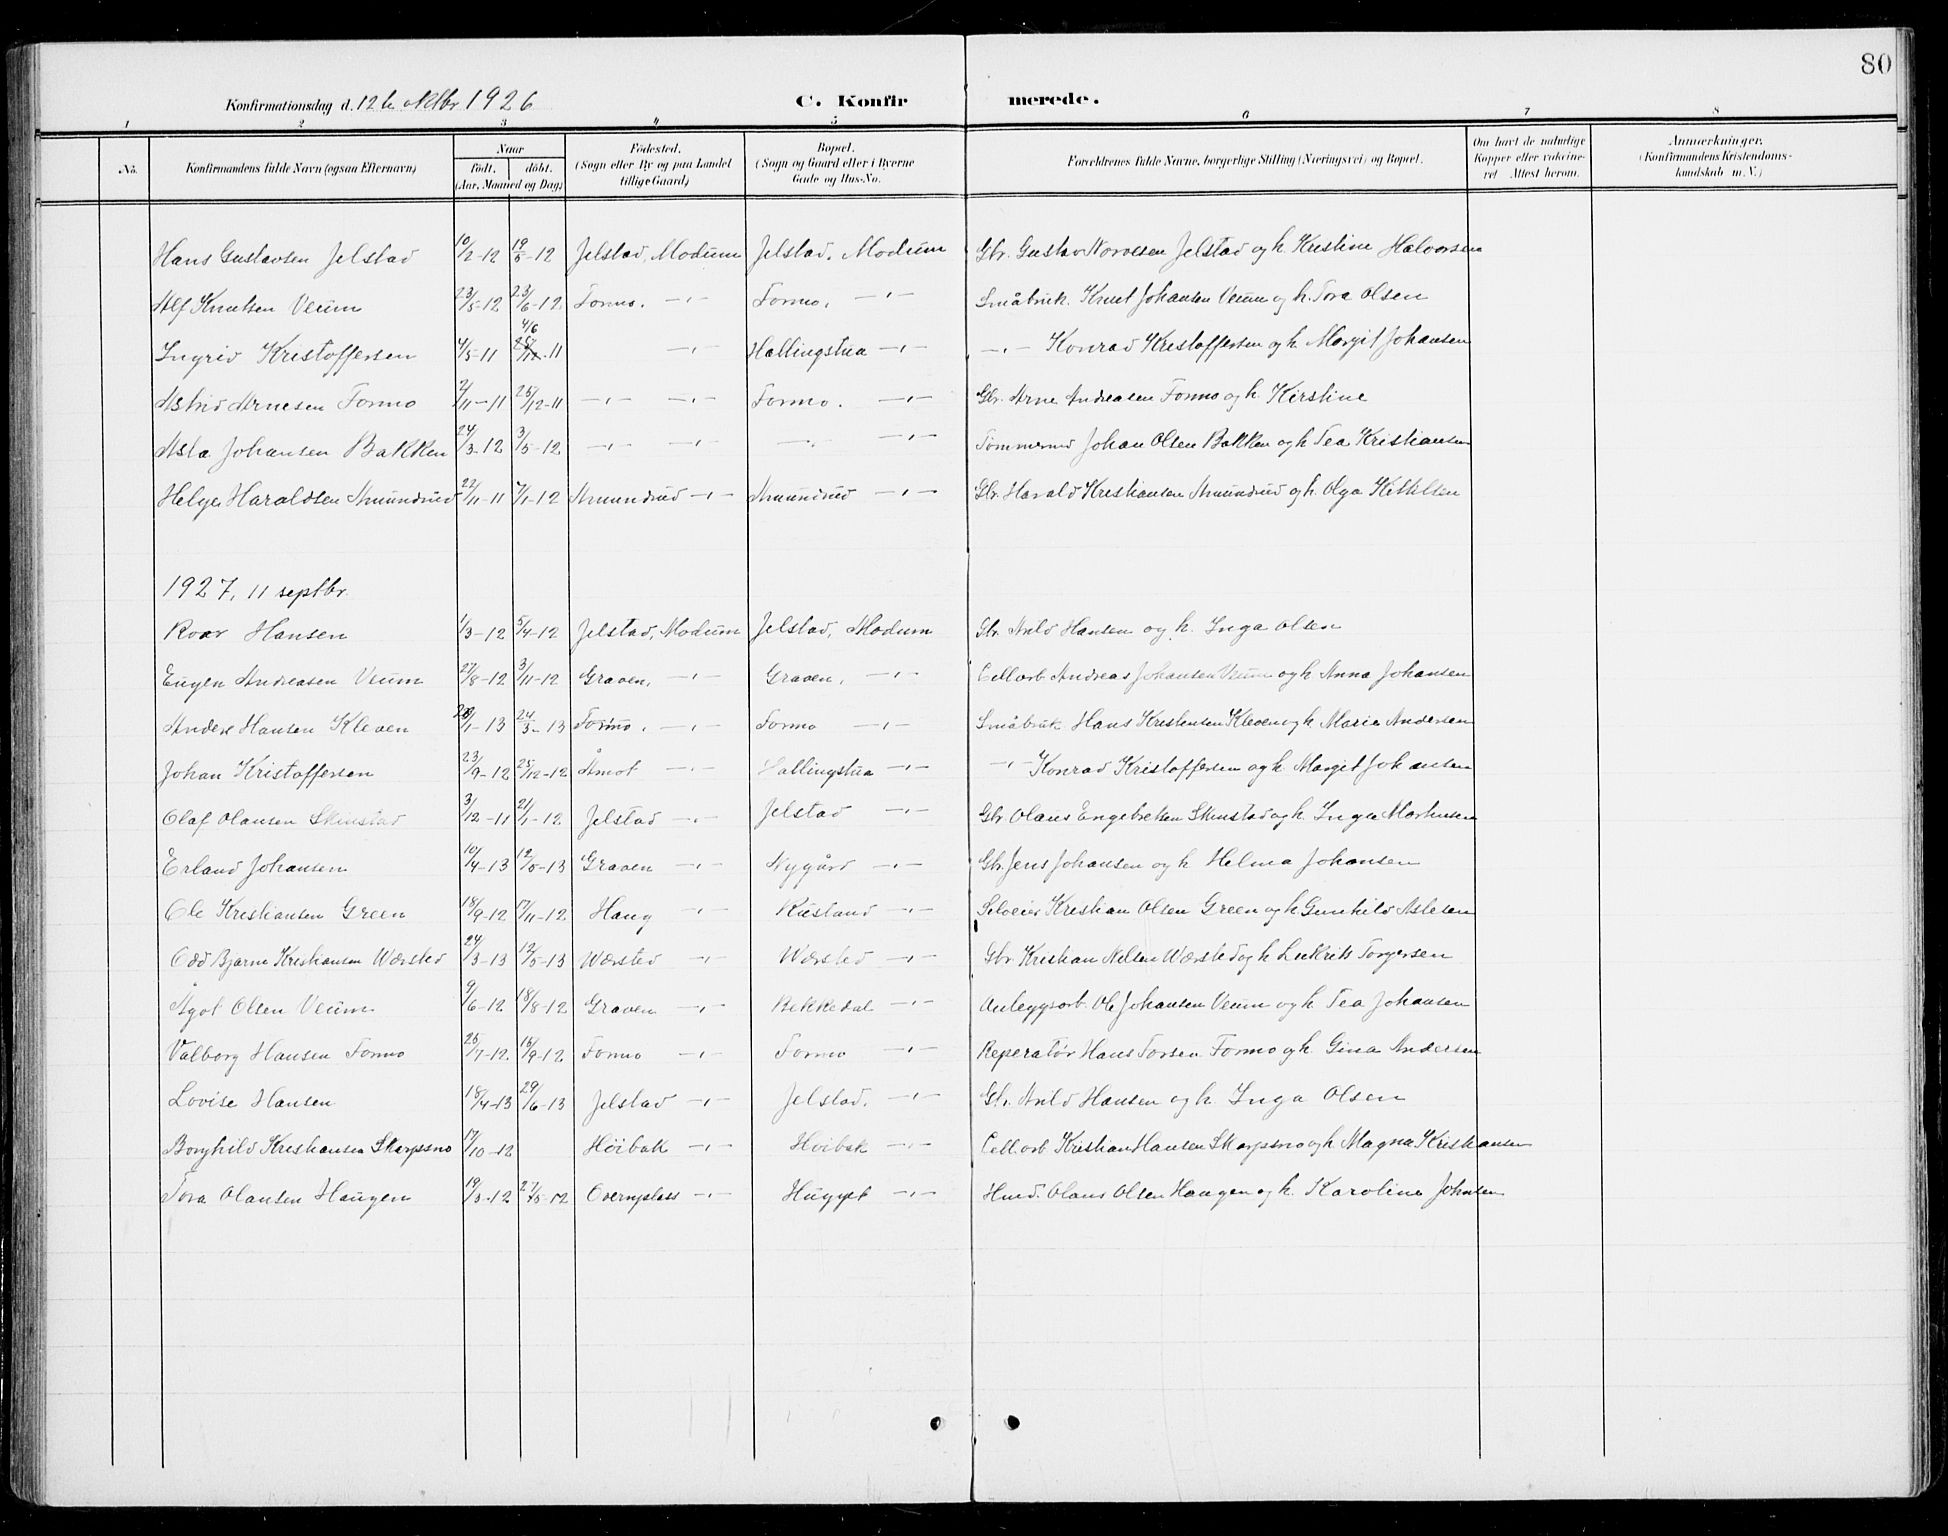 80
Konfirmationsdag d. 12te oktbr 1926 C. Konfirmerede.
1 2 3 4 5 6 7 8
No. Konfirmandens fulde Navn (ogsaa Efternavn) Naar født. døbt. (Aar, Maaned og Dag) Fødested. (Sogn eller By og paa Landet tillige Gaard) Bopæl. (Sogn og Gaard eller i Byerne Gade og Hus-No. Forældrenes fulde Navne, borgerlige Stilling (Næringsvei) og Bopæl. Om havt de naturlige Kopper eller vakcineret Attest herom. Anmærkninger. (Konfirmandens Kristendomskundskab m. V.)
Hans Gustavsen Jelstad 10/2-12 19/5-12 Jelstad, Modum Jelstad, Modum Gbr. Gustav Jelstad og h. Kristine Halvorsen
Alf Knutsen Veum 23/5-12 23/6-12 Formo, -"- Formo, -"- Småbruk. Knut Johansen Veum og h. Tora Olsen
Ingrid Kristoffersen 4/5-11 4/6 -11 -"- Hallingstua -"- -"- Konrad Kristoffersen og h. Margit Johansen
Astrid Arnesen Formo 2/11-11 25/12-11 -"- -"- Formo. -"- Gbr. Arne Andreasen Formo og h. Kirstine
Asta Johansen Bakken 24/3-12 3/5-12 -"- -"- -"- -"- Tømmermd Johan Olsen Bakken og h. Tea Kristiansen
Helge Haraldsen Amundrud 22/11-11 7/1-12 Amundrud -"- Amundrud -"- Gbr. Harald Kristiansen Amundrud og h. Olga Kittilsen
1927, 11 septbr.
Roar Hansen 1/3-12 5/4-12 Jelstad, Modum Jelstad, Modum Gbr. Arild Hansen og h. Inga Olsen
Eugen Andreasen Veum 27/8-12 3/11-12 Graven, -"- Graven, -"- Cell.arb Andreas Johansen Veum og h. Anna Johansen
Anders Hansen Kleven /1-13 24/3-13 Formo, -"- Formo -"- Småbruk Hans Kristensen Kleven og h. Marie Andersen
Johan Kristoffersen 23/9-12 25/12-12 Åmot -"- Hallingstua -"- -"- Konrad Kristoffersen og h. Margit Johansen
Olaf Olausen Skinstad 3/12-11 21/1-12 Jelstad -"- Jelstad -"- Gbr Olaus Engebretsen Skinstad og h. Inga Martinsen
Erland Johansen 10/4-13 12/5-13 Graven -"- Nygård -"- Gbr. Jens Johansen og h. Helma Johansen
Ole Kristiansen Green 18/9-12 17/11-12 Haug -"- Rustand -"- Selveier Kristian Olsen Green og h. Gunhild Aslesen
Odd Bjarne Kristiansen Wærsted 24/3-13 12/5-13 Wærsted -"- Wærsted -"- Gbr Kristian Nilsen Wærsted og h. Torgersen
Ågot Olsen Veum 9/6-12 18/8-12 Graven -"- Bekkedal -"- Anleggsarb. Ole Johansen Veum og h. Tea Johansen
Valborg Hansen Formo 25/7-12 15/9-12 Formo -"- Formo -"- Reperatør Hans Torsen Formo og h. Gina Andersen
Lovise Hansen 18/4-13 29/6-13 Jelstad -"- Jelstad. -"- Gbr. Arild Hansen og h. Inga Olsen
Borghild Kristiansen Skarpsno 17/10-12 Høibak -"- Høibak -"- Cell.arb Kristian Hansen Skarpsno og h. Magna Kristiansen
Tora Olausen Haugen 19/3-12 27/5-12 Overnplass -"- Hugget -"- Hmd. Olaus Olsen Haugen og h. Karoline Johnsen